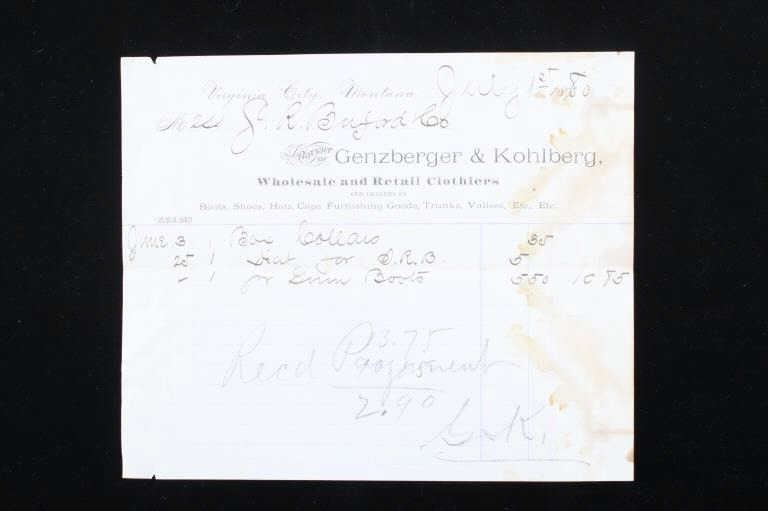 Virginia City, Montana, July 1st 1880
Mess S. R. Buford & Co
Genzberger & Kohlberg,
Wholesale and Retail Clothiers
AND DEALERS IN
Boots, Shoes, Hats, Caps, Furnishing Goods, Trunks, Valises, Etc., Etc.
June 3 1 Box Collars 35
25 1 Hat for S.R.B. 5
- 1 pr Gum Boots 5 50 10 85
3.75
Recd Payment
2.90
G & K.